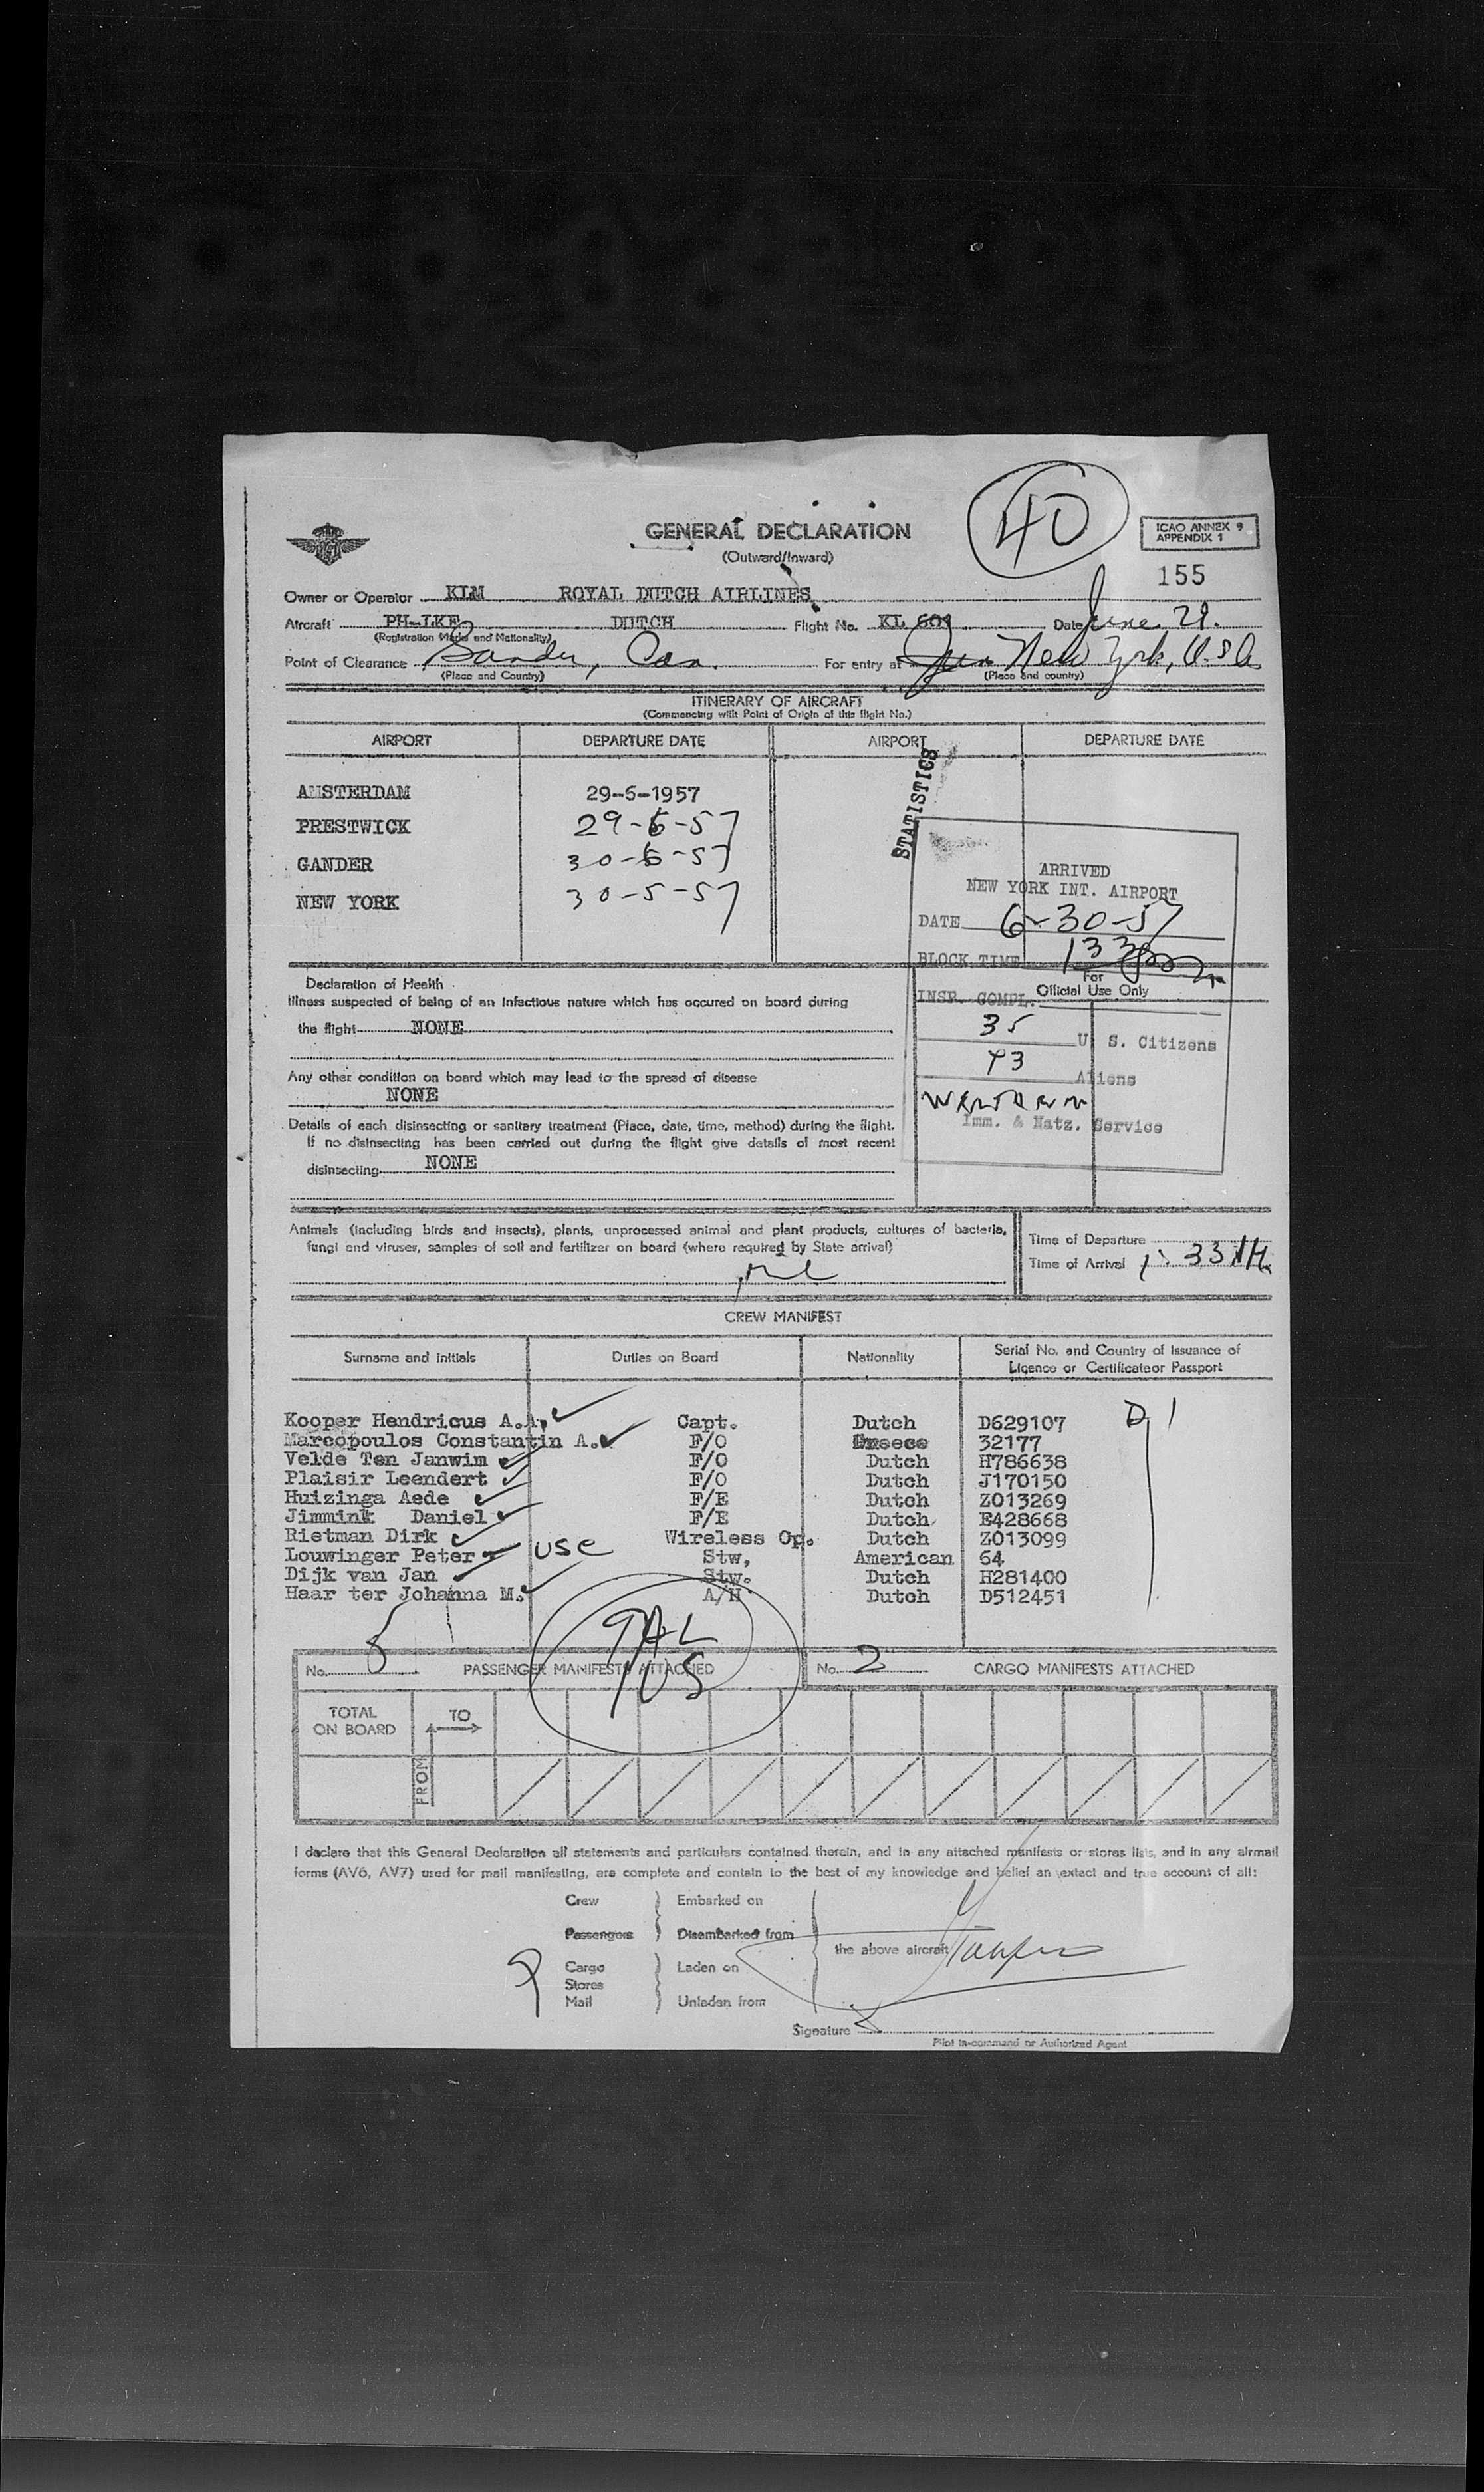 40
GENERAL DECLARATION
(Outward/Inward)
ICAO ANNEX 9
APPENDIX 1
155
Owner or Operator KLM ROYAL DUTCH AIRLINES
Aircraft PH-LKF DUTCH Flight No. KL 609 Date June 29.
(Registration Marks and Nationality)
Point of Clearance Gander, Can. For entry at New York, U.S.A
(Place and Country) (Place and country)
ITINERARY OF AIRCRAFT
(Commencing with Point of Origin of this flight No.)
AIRPORT DEPARTURE DATE AIRPORT DEPARTURE DATE
AMSTERDAM 29-6-1957
PRESTWICK 29-6-57
GANDER 30-6-57
NEW YORK 30-5-57
STATISTICS
ARRIVED
NEW YORK INT. AIRPORT
DATE 6-30-57
BLOCK TIME 133
For
Official Use Only
INSP. COMPL.
35 U. S. Citizens
73 Aliens
Imm. & Natz. Service
Declaration of Health
Illness suspected of being of an infectious nature which has occured on board during
the flight NONE
Any other condition on board which may lead to the spread of disease
NONE
Details of each disinsecting or sanitary treatment (Place, date, time, method) during the flight.
If no disinsecting has been carried out during the flight give details of most recent
disinsecting NONE
Animals (including birds and insects), plants, unprocessed animal and plant products, cultures of bacteria,
fungi and viruses, samples of soil and fertilizer on board (where required by State arrival)
nil
Time of Departure
Time of Arrival 1:33
CREW MANIFEST
Surname and initials Duties on Board Nationality Serial No. and Country of Issuance of
Licence or Certificateor Passport
Kooper Hendricus A.A. Capt. Dutch D629107 D 1
Marcopoulos Constantin A. F/O Greece 32177
Velde Ten Janwim F/O Dutch H786638
Plaisir Leendert F/O Dutch J170150
Huizinga Aede F/E Dutch Z013269
Jimmink Daniel F/E Dutch E428668
Rietman Dirk Wireless Op. Dutch Z013099
Louwinger Peter USC Stw, American 64
Dijk van Jan Stw. Dutch H281400
Haar ter Johanna M. A/H Dutch D512451
No. 5 PASSENGER MANIFESTS ATTACHED No. 2 CARGO MANIFESTS ATTACHED
9AL
10S
TOTAL
ON BOARD
TO
FROM
I declare that this General Declaration all statements and particulars contained therein, and in any attached manifests or stores lists, and in any airmail
forms (AV6, AV7) used for mail manifesting, are complete and contain to the best of my knowledge and belief an extact and true account of all:
Crew Embarked on
Passengers Disembarked from
the above aircraft
Cargo Laden on
Stores
Mail Unladen from
Signature
Pilot in-command or Authorized Agent